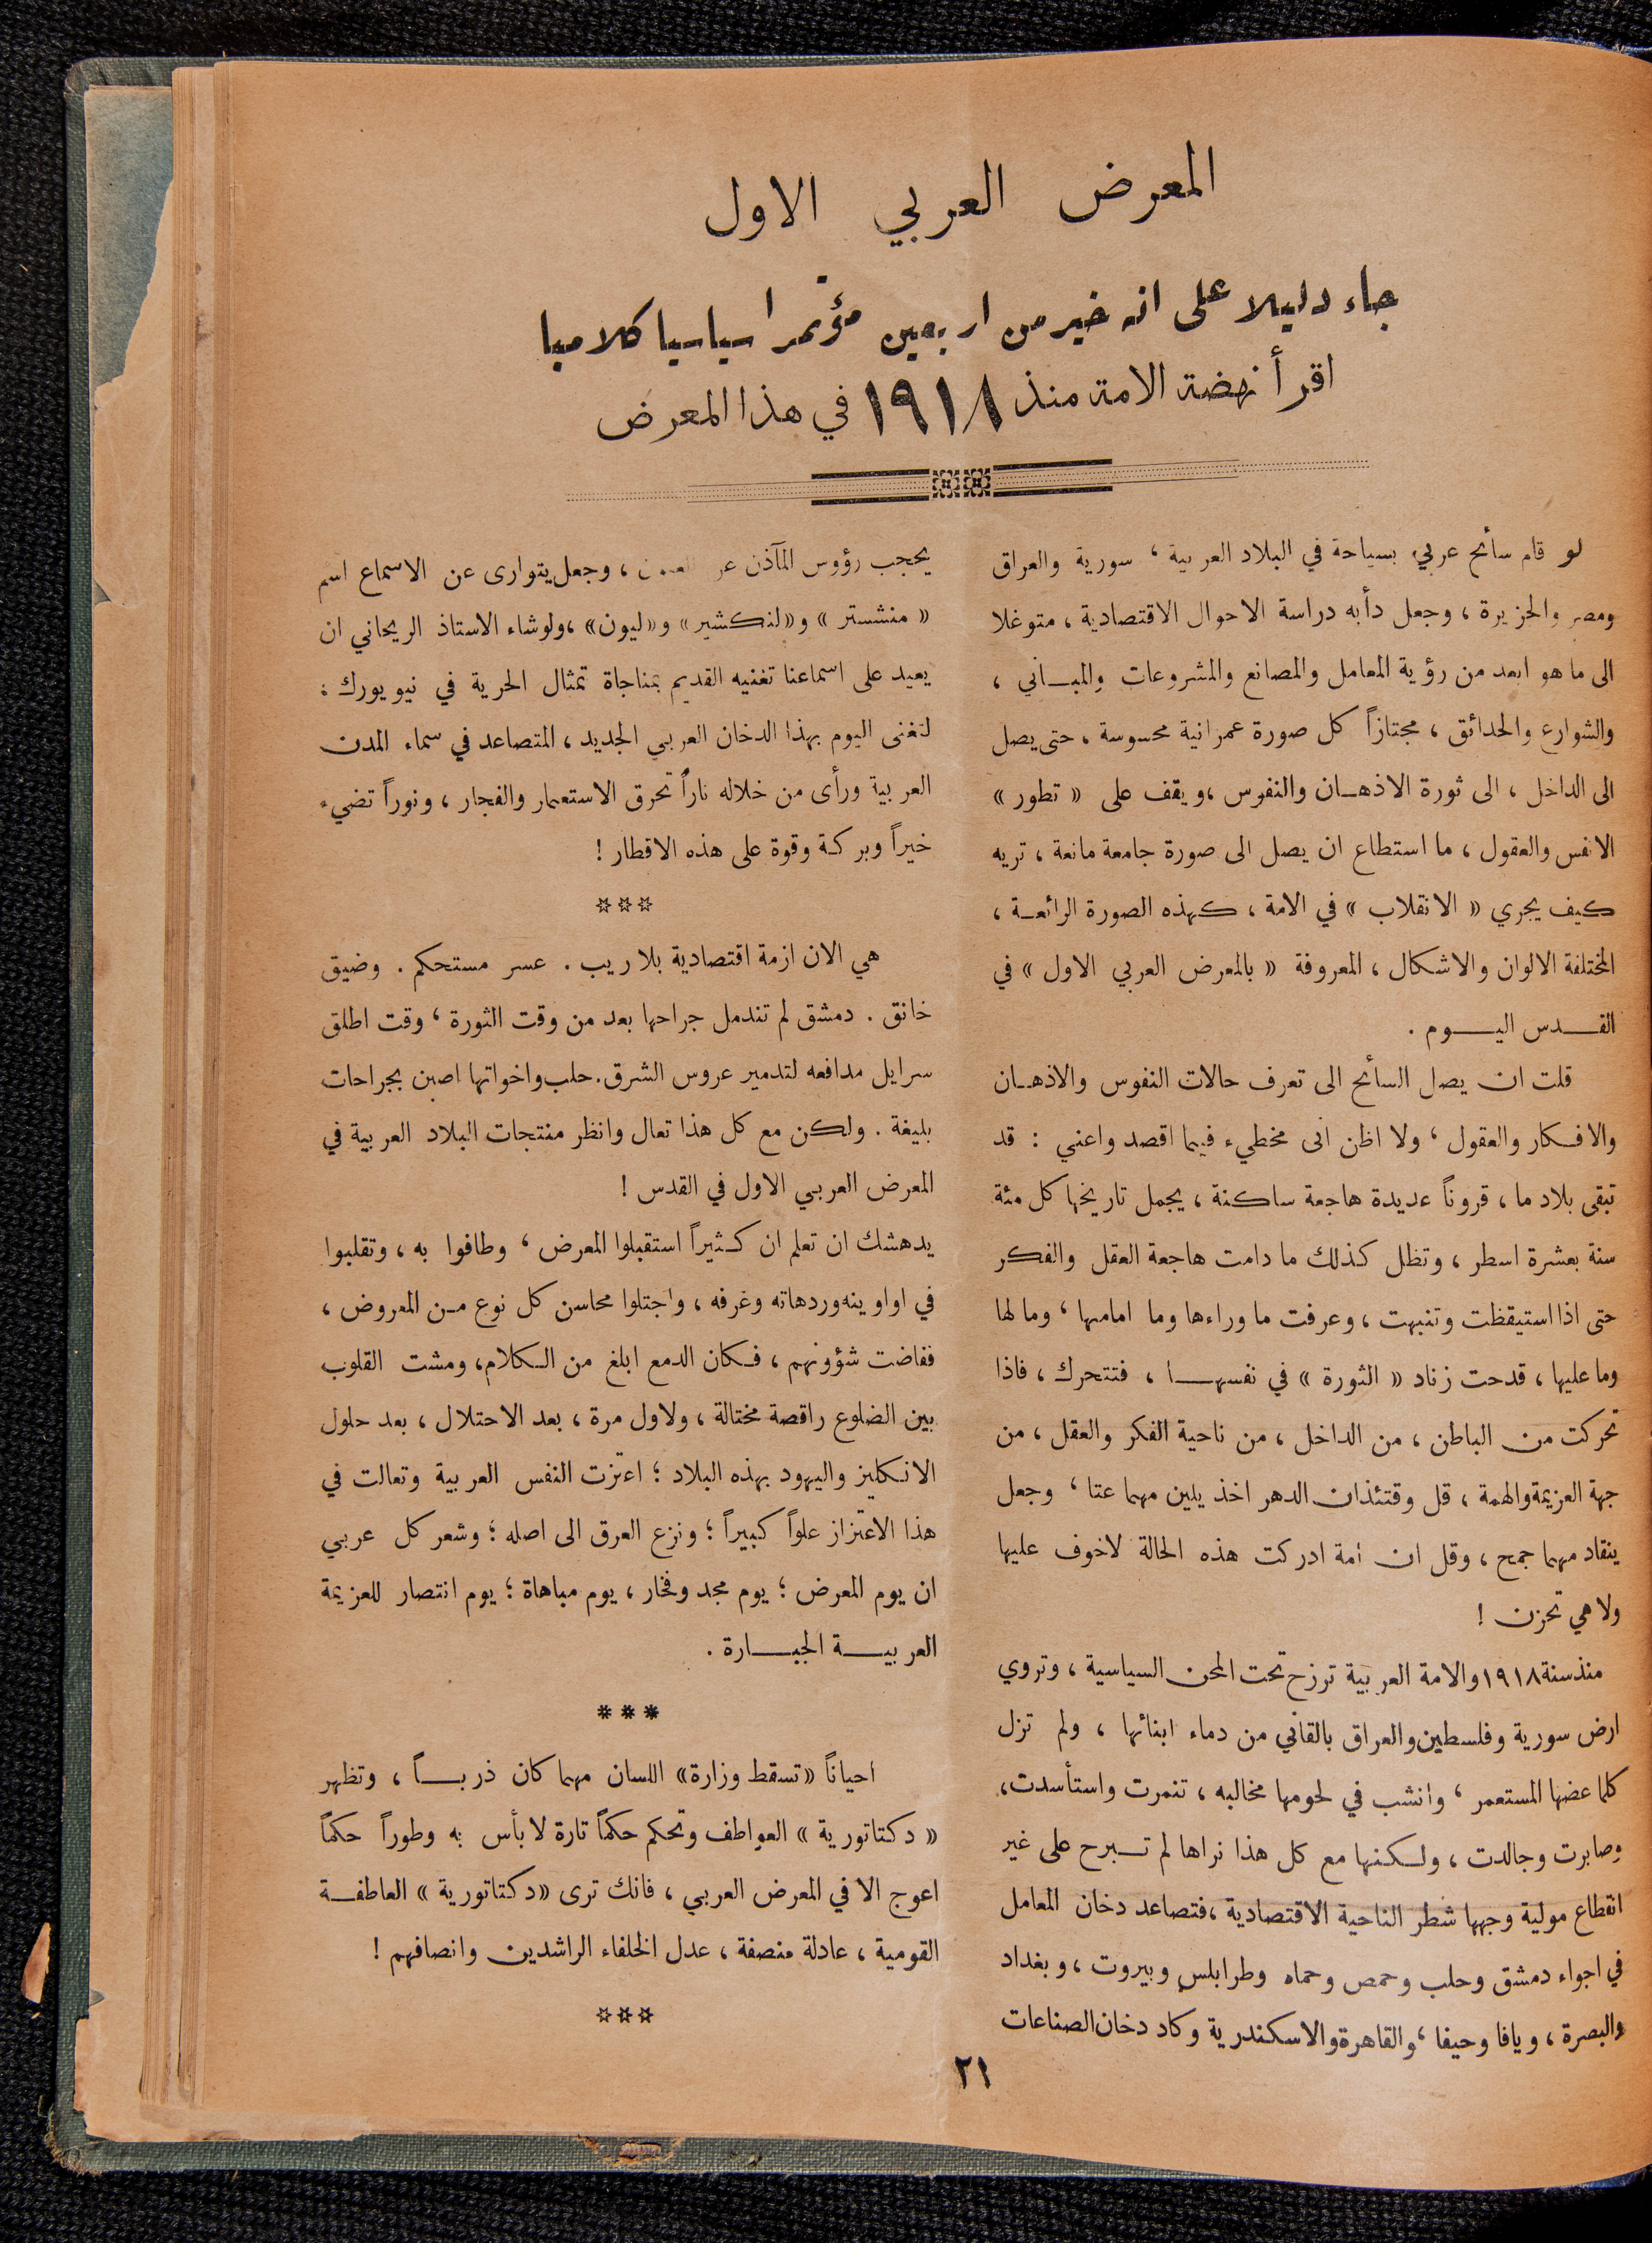 المعرض العربي الاول
جاء دليلا على انه خير من اربعين مؤتمرا سياسيا كلاميا
اقرأ نهضة الامة منذ ١٩١٨ في هذا المعرض
لو قام سائح عربي بسياحة في البلاد العربية ، سورية والعراق
ومصر والجزيرة ، وجعل دأبه دراسة الاحوال الاقتصادية ، متوغلا
الى ما هو ابعد من رؤية المعامل والمصانع والمشروعات والمبـاني ،
والشوارع والحدائق ، مجتازاً كل صورة عمرانية محسوسة ، حتى يصل
الى الداخل ، الى ثورة الاذهـان والنفوس ، ويقف على « تطور »
الانفس والعقول ، ما استطاع ان يصل الى صورة جامعة مانعة ، تريه
كيف يجري « الانقلاب » في الامة ، كهذه الصورة الرائعـة ،
المختلفة الالوان والاشكال ، المعروفة « بالمعرض العربي الاول » في
القـدس اليـوم .
قلت ان يصل السائح الى تعرف حالات النفوس والاذهـان
والافكار والعقول ، ولا اظن انى مخطيء فيما اقصد واعني : قد
تبقى بلاد ما ، قروناً عديدة هاجعة ساكنة ، يجمل تاريخها كل مئة
سنة بعشرة اسطر ، وتظل كذلك ما دامت هاجعة العقل والفكر
حتى اذا استيقظت وتنبهت ، وعرفت ما وراءها وما امامها ، وما لها
وما عليها ، قدحت زناد « الثورة » في نفسهـا ، فتتحرك ، فاذا
تحركت من الباطن ، من الداخل ، من ناحية الفكر والعقل ، من
جهة العزيمة والهمة ، قل وقتئذان الدهر اخذ يلين مهما عتا ، وجعل
ينقاد مهما جمح ، وقل ان امة ادركت هذه الحالة لاخوف عليها
ولا هي تحزن !
منذ سنة ١٩١٨ والامة العربية ترزح تحت المحن السياسية ، وتروي
ارض سورية وفلسطين والعراق بالقاني من دماء ابنائها ، ولم تزل
كلما عضها المستعمر ، وانشب في لحومها مخالبه ، تنمرت واستأسدت ،
وصابرت وجالدت ، ولكنها مع كل هذا نراها لم تـبرح على غير
انقطاع مولية وجهها شطر الناحية الاقتصادية ، فتصاعد دخان المعامل
في اجواء دمشق وحلب وحمص وحماه وطرابلس وبيروت ، وبغداد
والبصرة ، ويافا وحيفا ، والقاهرة والاسكندرية وكاد دخان الصناعات
يحجب رؤوس المآذن ، وجعل يتوارى عن الاسماع اسم
« منشستر » و«لنكشير» و«ليون» ، ولوشاء الاستاذ الريحاني ان
يعيد على اسماعنا تغنيه القديم بمناجاة تمثال الحرية في نيويورك :
لتغنى اليوم بهذا الدخان العربي الجديد ، المتصاعد في سماء المدن
العربية ورأى من خلاله ناراً تحرق الاستعمار والفجار ، ونوراً تضيء
خيراً وبركة وقوة على هذه الاقطار !
***
هي الان ازمة اقتصادية بلا ريب . عسر مستحكم . وضيق
خانق . دمشق لم تندمل جراحها بعد من وقت الثورة ، وقت اطلق
سرايل مدافعه لتدمير عروس الشرق . حلب واخواتها اصبن بجراحات
بليغة . ولكن مع كل هذا تعال وانظر منتجات البلاد العربية في
المعرض العربي الاول في القدس !
يدهشك ان تعلم ان كثيراً استقبلوا المعرض ، وطافوا به ، وتقلبوا
في اواوينه وردهاته وغرفه ، واجتلوا محاسن كل نوع مـن المعروض ،
ففاضت شؤونهم ، فكان الدمع ابلغ من الكلام ، ومشت القلوب
بين الضلوع راقصة مختالة ، ولاول مرة ، بعد الاحتلال ، بعد حلول
الانكليز واليهود بهذه البلاد ؛ اعتزت النفس العربية وتعالت في
هذا الاعتزاز علواً كبيراً ؛ ونزع العرق الى اصله ؛ وشعر كل عربي
ان يوم المعرض ؛ يوم مجد وفخار ، يوم مباهاة ؛ يوم انتصار للعزيمة
العربيـة الجبـارة .
***
احياناً «تسقط وزارة» اللسان مهما كان ذربـاً ، وتظهر
« دكتاتورية » العواطف وتحكم حكماً تارة لا بأس به وطوراً حكماً
اعوج الا في المعرض العربي ، فانك ترى «دكتاتورية » العاطفـة
القومية ، عادلة منصفة ، عدل الخلفاء الراشدين وانصافهم !
***
٢١